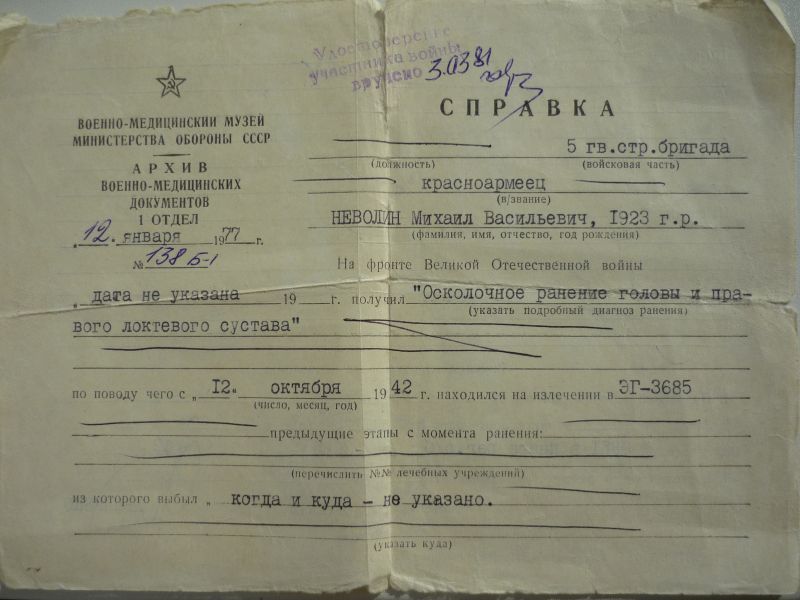 Удостоверение
участника войны
вручено 3.03.81
ВОЕННО-МЕДИЦИНСКИЙ МУЗЕЙ
МИНИСТЕРСТВА ОБОРОНЫ СССР
АРХИВ
ВОЕННО-МЕДИЦИНСКИХ
ДОКУМЕНТОВ
1 ОТДЕЛ
„12. января 1977 г.
№ 138 Б-1
СПРАВКА
5 гв.стр.бригада
(должность) (войсковая часть)
красноармеец
(в/звание)
НЕВОЛИН Михаил Васильевич, 1923 г.р.
(фамилия, имя, отчество, год рождения)
На фронте Великой Отечественной войны
„дата не указана 19 г. получил "Осколочное ранение головы и пра-
(указать подробный диагноз ранения)
вого локтевого сустава"
по поводу чего с „12" октября 1942 г. находился на излечении в ЭГ-3685
(число, месяц, год)
предыдущие этапы с момента ранения:
(перечислить №№ лечебных учреждений)
из которого выбыл „ когда и куда - не указано.
(указать куда)